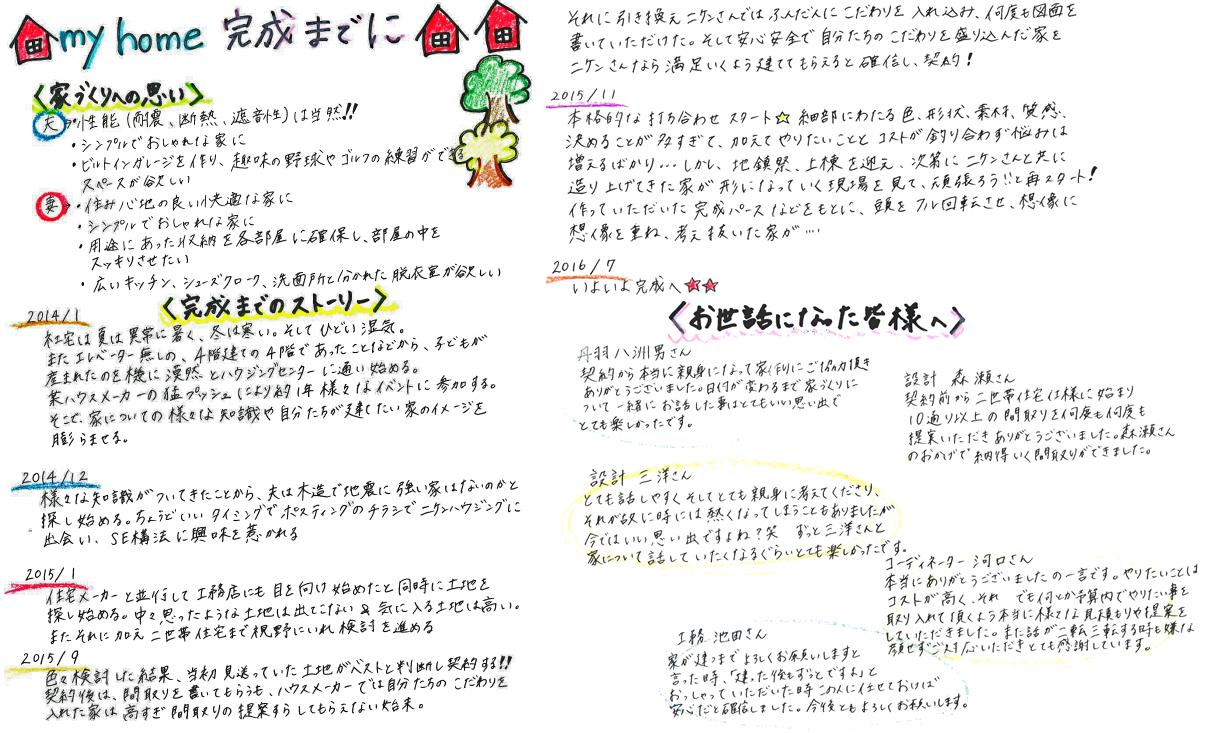 my home 完成までに
〈家づくりへの思い〉
夫 ・性能(耐震、断熱、遮音性)は当然!!
・シンプルでおしゃれな家に
・ビルトインガレージを作り、趣味の野球やゴルフの練習ができる
スペースが欲しい
妻 ・住み心地の良い快適な家に
・シンプルでおしゃれな家に
・用途にあった収納を各部屋に確保し、部屋の中を
スッキリさせたい
・広いキッチン、シューズクローク、洗面所と分かれた脱衣室が欲しい
〈完成までのストーリー〉
2014/1
社宅は夏は異常に暑く、冬は寒い。そしてひどい湿気。
またエレベーター無しの、4階建ての4階であったことなどから、子どもが
産まれたのを機に漠然とハウジングセンターに通い始める。
某ハウスメーカーの猛プッシュにより約1年様々なイベントに参加する。
そこで、家についての様々な知識や自分たちが建てたい家のイメージを
膨らませる。
2014/12
様々な知識がついてきたことから、夫は木造で地震に強い家はないのかと
探し始める。ちょうどいいタイミングでポスティングのチラシでニケンハウジングに
出会い、SE構法に興味を惹かれる
2015/1
住宅メーカーと並行して工務店にも目を向け始めたと同時に土地を
探し始める。中々思ったような土地は出てこない&気に入る土地は高い。
またそれに加え二世帯住宅まで視野にいれ検討を進める
2015/9
色々検討した結果、当初見送っていた土地がベストと判断し契約する!!
契約後は、間取りを書いてもらうも、ハウスメーカーでは自分たちのこだわりを
入れた家は高すぎ間取りの提案すらしてもらえない始末。
それに引き換えニケンさんではふんだんにこだわりを入れ込み、何度も図面を
書いていただけた。そして安心安全で自分たちのこだわりを盛り込んだ家を
ニケンさんなら満足いくよう建ててもらえると確信し、契約!
2015/11
本格的な打ち合わせスタート☆ 細部にわたる色、形状、素材、質感、
決めることが多すぎて、加えてやりたいこととコストが釣り合わず悩みは
増えるばかり… しかし、地鎮祭、上棟を迎え、次第にニケンさんと共に
造り上げてきた家が形になっていく現場を見て、頑張ろう!!と再スタート!
作っていただいた完成パースなどをもとに、頭をフル回転させ、想像に
想像を重ね、考え抜いた家が….
2016/7
いよいよ完成へ★★
〈お世話になった皆様へ〉
丹羽八洲男さん
契約から本当に親身になって家作りにご協力頂き
ありがとうございました。日付が変わるまで家づくりに
ついて一緒にお話した事はとてもいい思い出で
とても楽しかったです。
設計 森瀬さん
契約前から二世帯住宅仕様に始まり
10通り以上の間取りを何度も何度も
提案いただきありがとうございました。森瀬さん
のおかげで納得いく間取りができました。
設計 三洋さん
とても話しやすくそしてとても親身に考えてくださり、
それが故に時には熱くなってしまうこともありましたが
今ではいい思い出ですよね?笑 ずっと三洋さんと
家について話していたくなるぐらいとても楽しかったです。
コーディネーター 河口さん
本当にありがとうございましたの一言です。やりたいことは
コストが高く、それ でも何とか予算内でやりたい事を
取り入れて頂くよう本当に様々な見積もりや提案を
していただきました。また話が二転三転する時も嫌な
顔せずご対応いただきとても感謝しています。
工務 池田さん
家が建つまでよろしくお願いしますと
言った時、「建った後もずっとですよ」と
おっしゃっていただいた時この人に任せておけば
安心だと確信しました。今後ともよろしくお願いします。